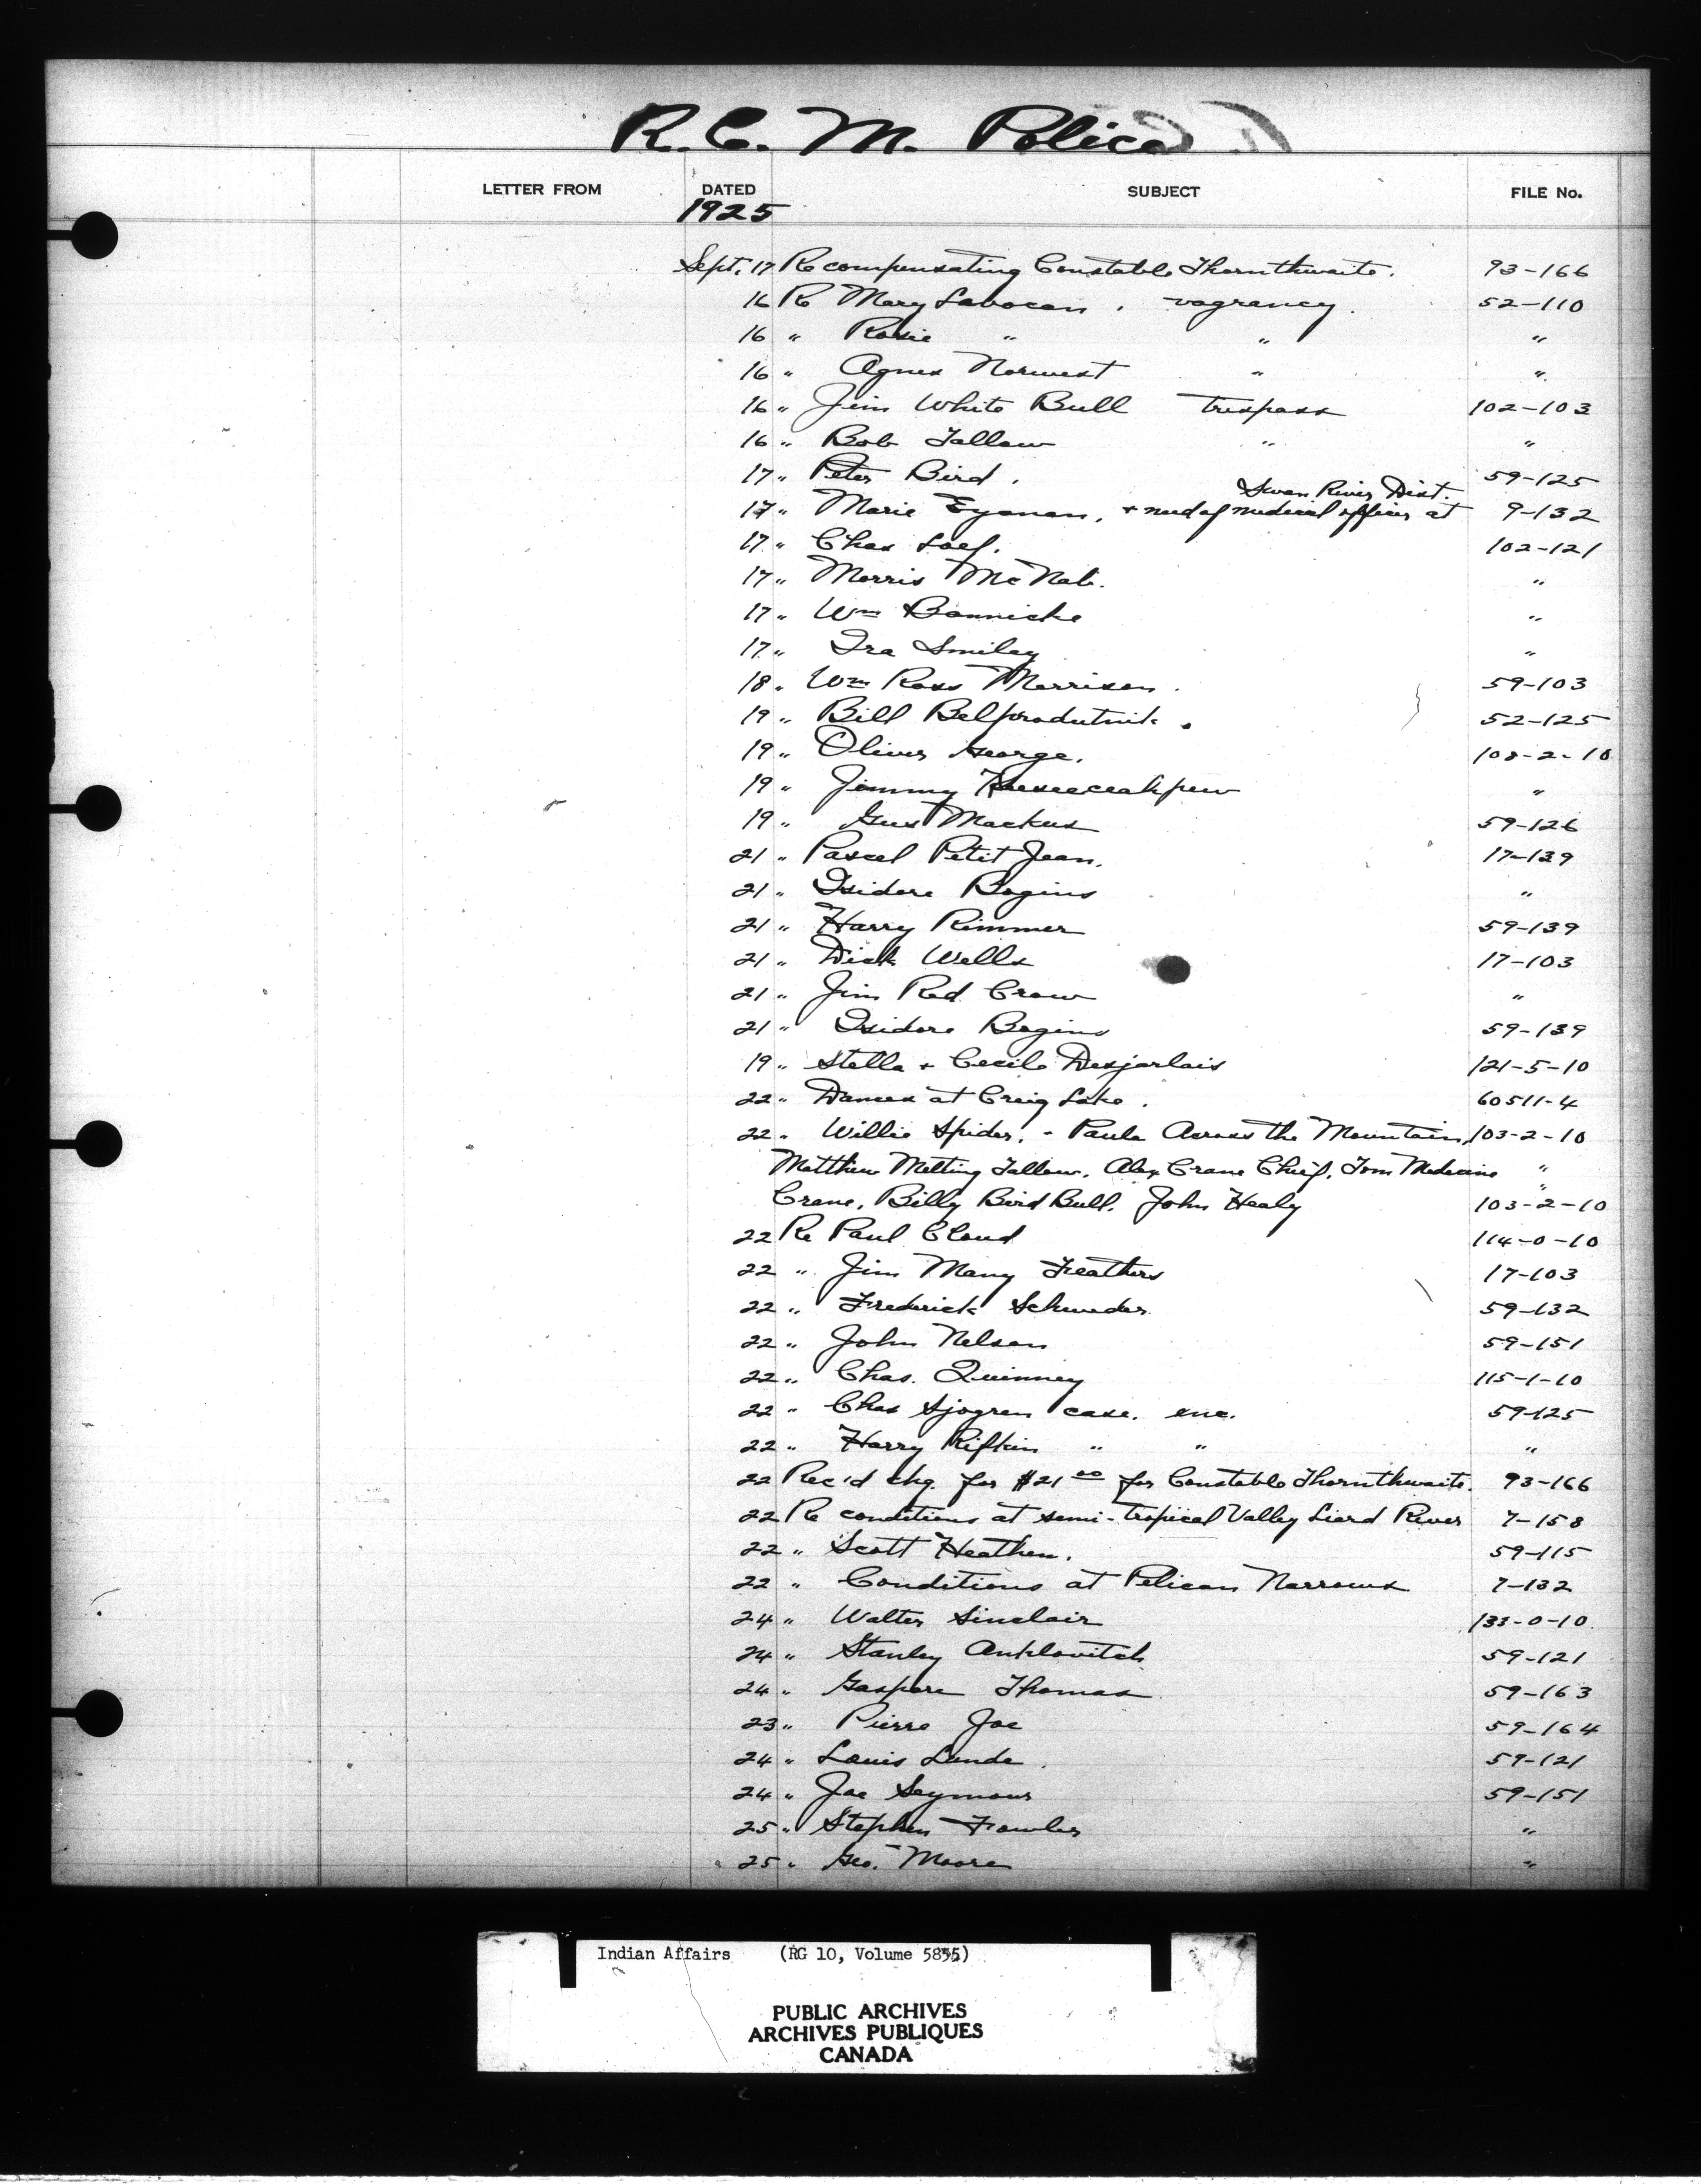 R. C. M. Police
LETTER FROM DATED SUBJECT FILE No.
1925
Sept. 17 Re compensating Constable Thornthwaite. 93-166
16 Re Mary Lavocan. vagrancy. 52-110
16 " Rosie " " "
16 " Agnes Norwest " "
16 " Jim White Bull trespass 102-103
16 " Bob Tallow " "
17 " Peter Bird. 59-125
Swan River Dist.
17 " Marie Eyanan, + need of medical officer at 9-132
17 " Chas 102-121
17 " Morris McNab. "
17 " Wm Bannicke "
17 " Ira Smiley "
18 " Wm Ross Morrison. 59-103
19 " Bill 52-125
19 " Oliver George. 108-2-10
19 " Jimmy "
19 " Gus Mackus 59-126
21 " Pascel Petit Jean. 17-139
21 " Isidore Bogins "
21 " Harry Rimmer 59-139
21 " Dick Wells 17-103
21 " Jim Red Crow "
21 " Isidore Bogins 59-139
19 " Stella + Cecile Desjarlais 121-5-10
22 " Dances at Craig Lake. 60511-4
22 " Willie Spider. - Paula Across the Mountain, 103-2-10
Matthew Melting Tallow. Alex Crane Chief. Tom Medicine "
Crane. Billy Bird Bull. John Healy 103-2-10
22 Re Paul Cloud 114-0-10
22 " Jim Many Feathers 17-103
22 " Frederick Schweder 59-132
22 " John Nelson 59-151
22 " Chas. Quinney 115-1-10
22 " Chas Sjogren case. enc. 59-125
22 " Harry Rifkin " " "
22 Rec'd chq. for $21 00 for Constable Thornthwaite. 93-166
22 Re conditions at semi-tropical Valley Liard River 7-158
22 " Scott Heathen. 59-115
22 " Conditions at Pelican Narrows 7-132
24 " Walter Sinclair 133-0-10
24 " Stanley Anklovitch 59-121
24 " Gaspare Thomas 59-163
23 " Pierre Joe 59-164
24 " Louis Lande. 59-121
24 " Joe Seymour 59-151
25 " Stephen Fowler "
25 " Geo. Moore "
Indian Affairs (RG 10, Volume 5855)
PUBLIC ARCHIVES
ARCHIVES PUBLIQUES
CANADA